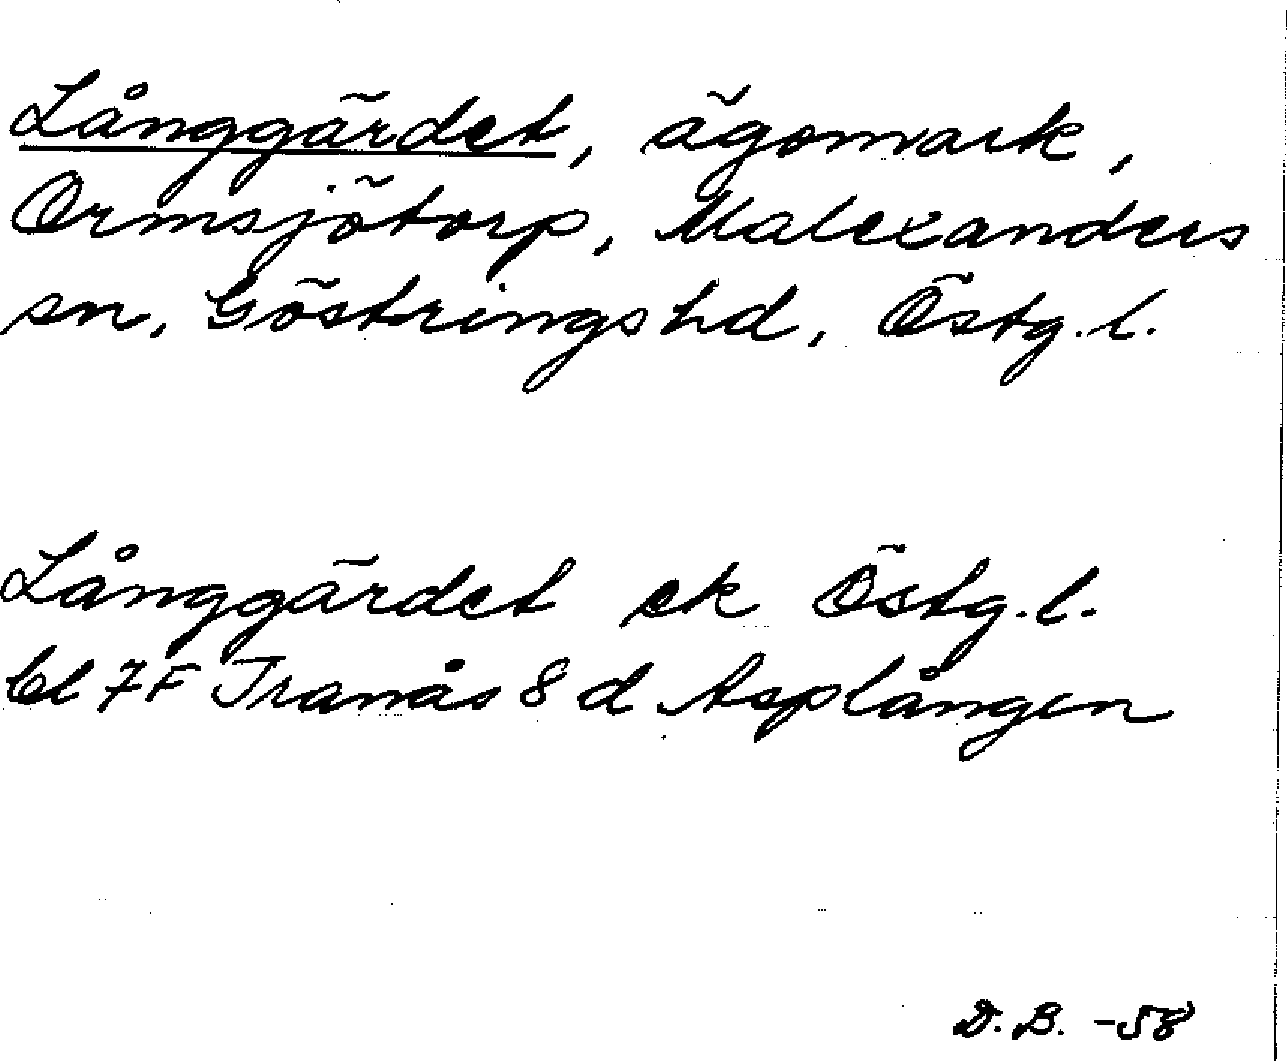 Långgärdet, ägomark,
Ormsjötorp, Malexanders
sn, Göstrings hd, Östg. l.
Långgärdet ek Östg. l.
bl 7F Tranås 8 d Asplången
D. B. -58